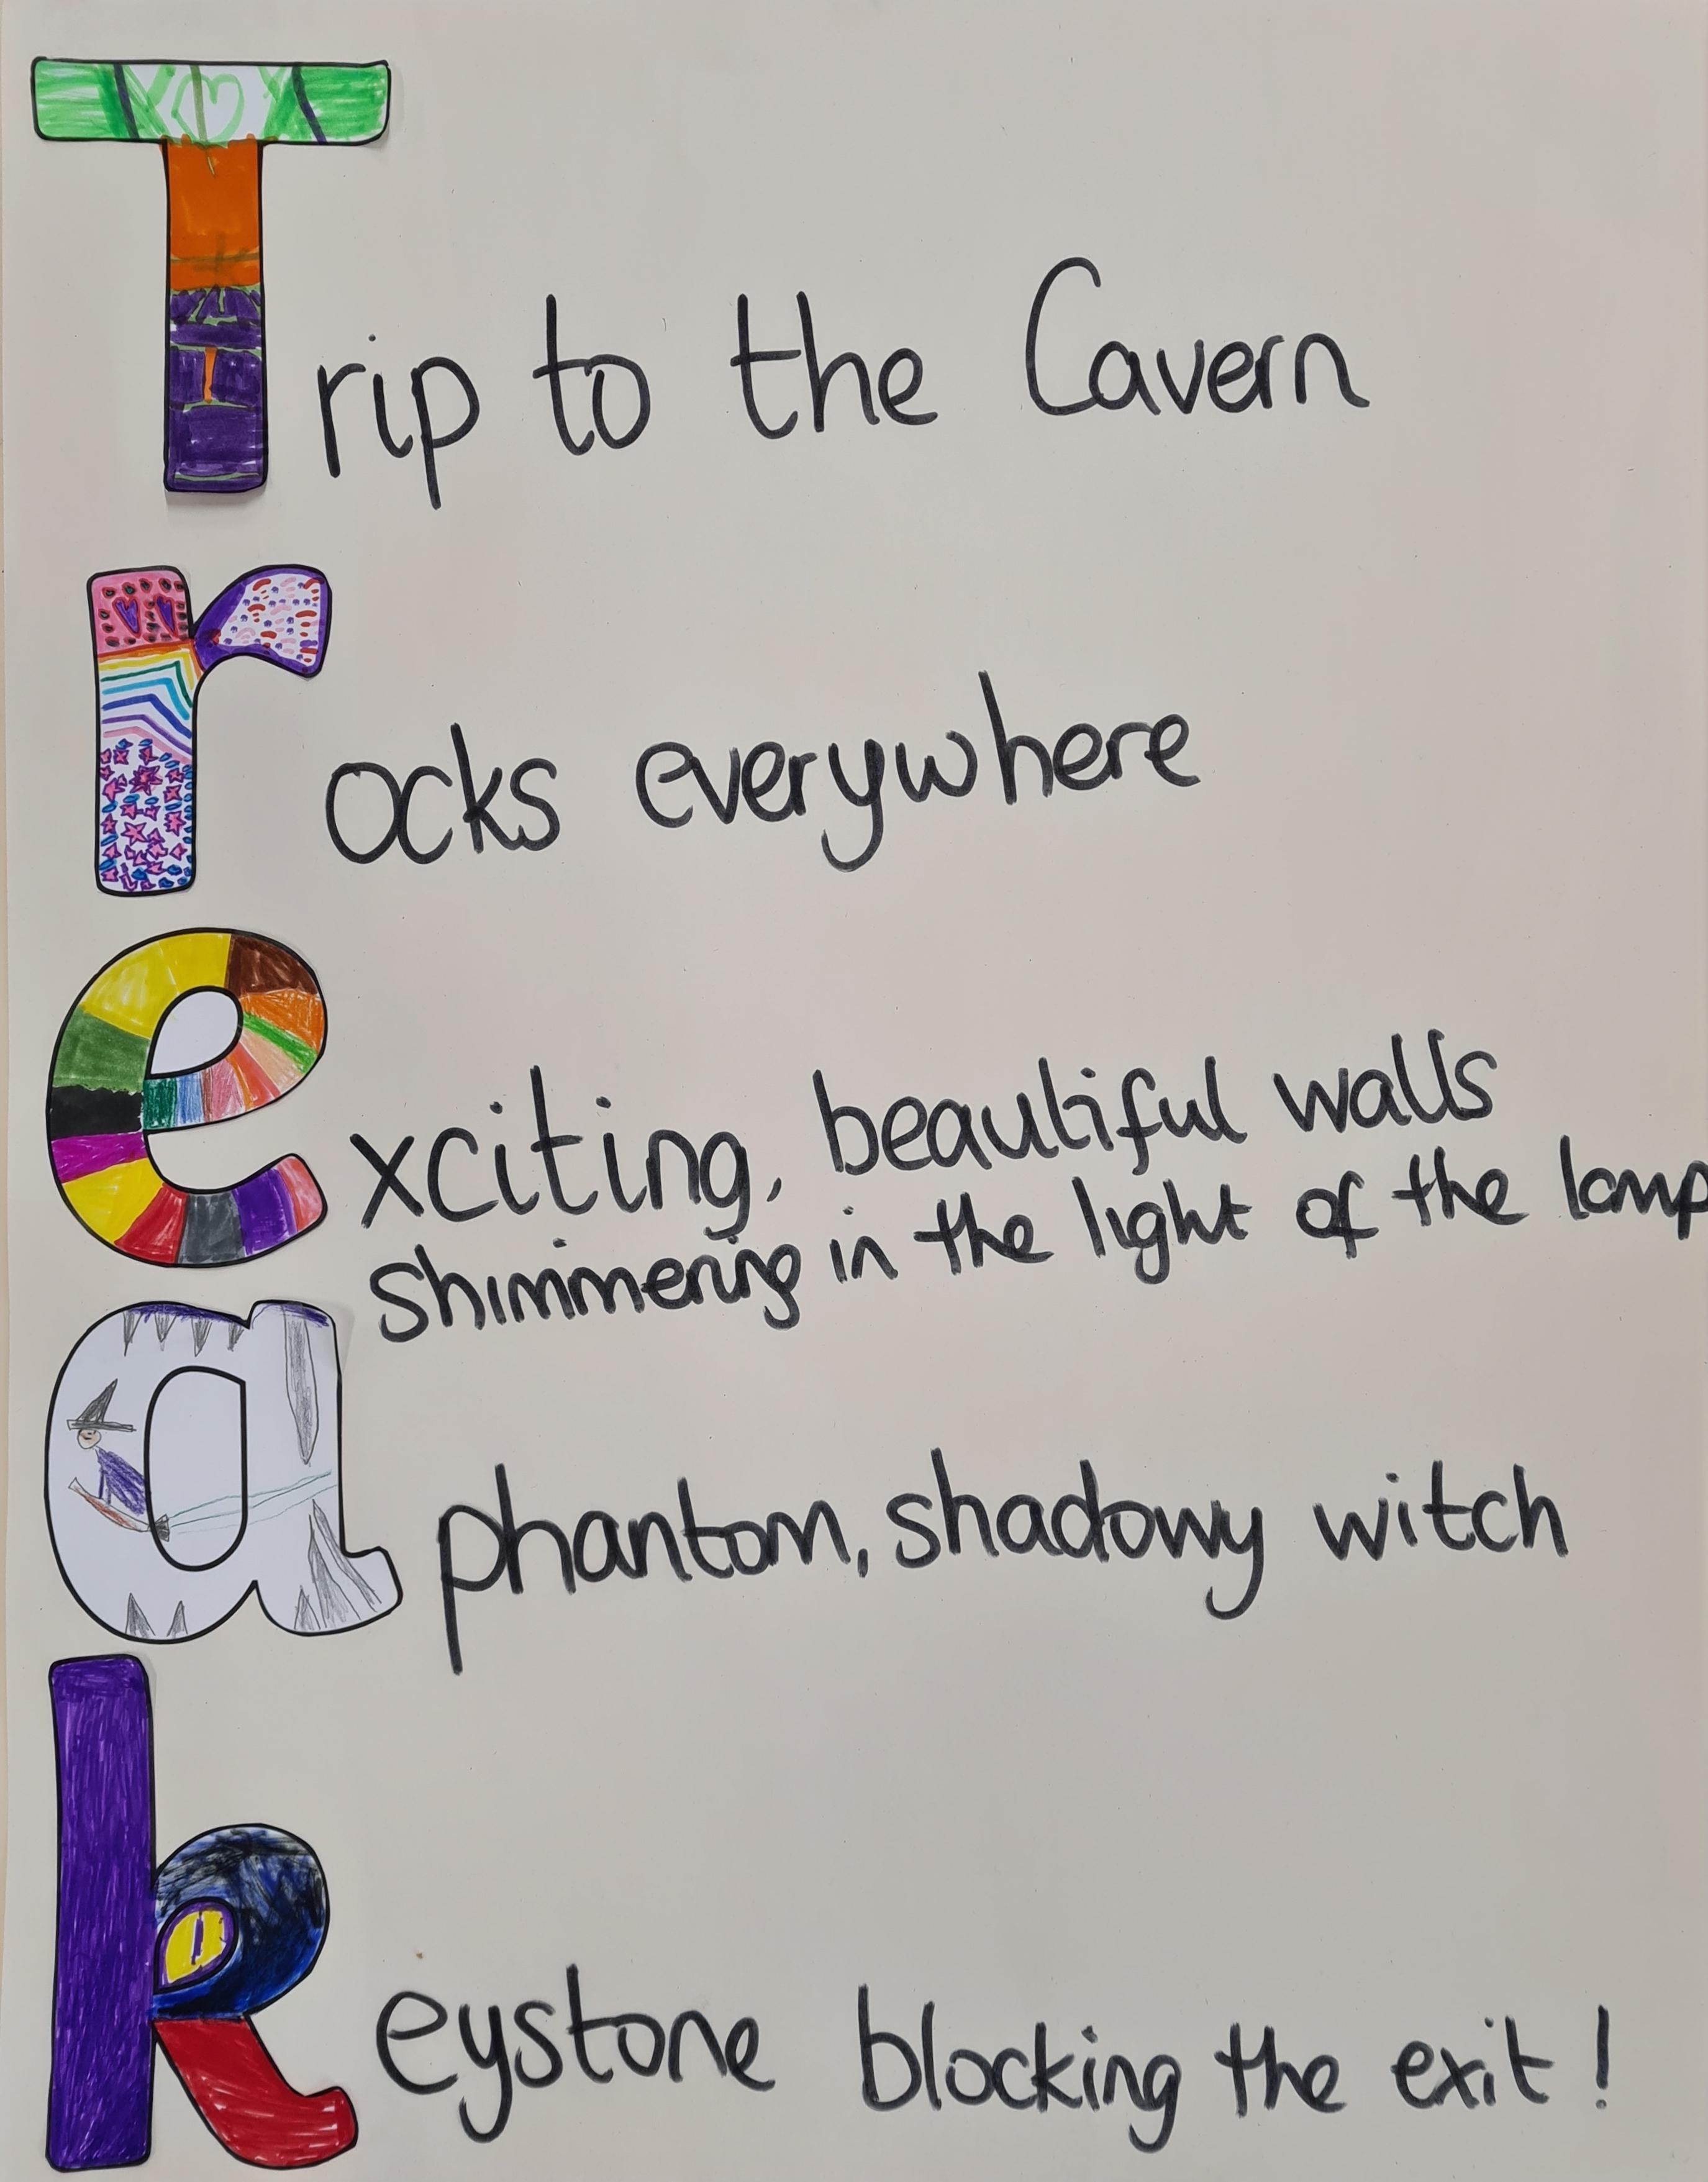 Trip to the Cavern
rocks everywhere
exciting, beautiful walls
shimmering in the light of the lamp
a phantom, shadowy witch
keystone blocking the exit!